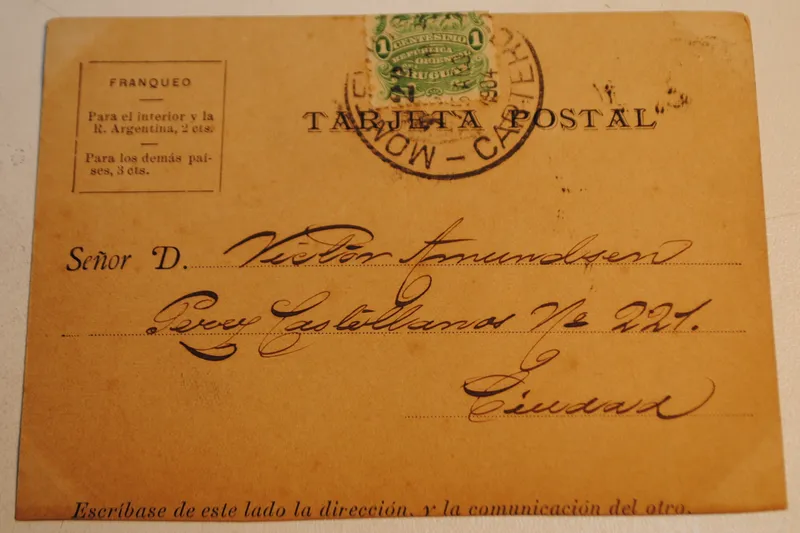 1 CENTÉSIMO 1
REPÚBLICA
ORIENTAL
URUGUAY
CARTERO
1904
MONT
FRANQUEO
Para el interior y la
R. Argentina, 2 cts.
Para los demás paí-
ses, 3 cts.
TARJETA POSTAL
Señor D. Victor Amundsen
Perez Castellanos No 221.
Ciudad
Escríbase de este lado la dirección, y la comunicación del otro.